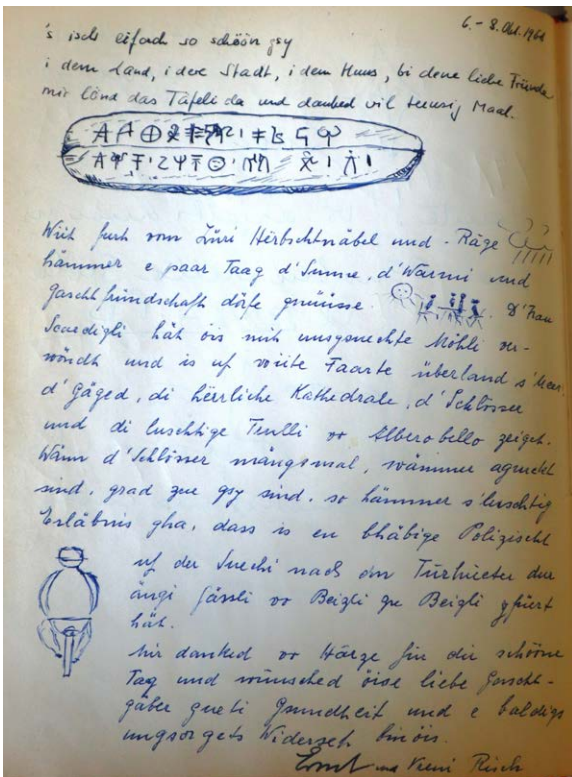 6.-8. Okt. 1968
's isch eifach so schöön gsy
i dem Land, i dere Stadt, i dem Huus, bi dene liebe Fründe
mir lönd das Täfeli da und danked vil tuusig Maal.
Wiit furt vom Züri Herbschtnäbel und -Räge
hämmer e paar Taag d'Sunne, d'Wärmi und
Gaschtfründschaft dörfe gnüüsse. D'Frau
hät öis mit uusgsuechte Möhli ver-
wöhnt und is uf wiite Faarte überland s'Meer,
d'Gäged, di herrliche Kathedrale, d'Schlösser
und di luschtige Trulli vo Alberobello zeiget.
Wänn d'Schlösser mängsmal, wämmer agruckt
sind, grad zue gsy sind, so hämmer s'luschtig
Erläbnis gha, dass is en bhäbige Polizischt
uf der Suechi nach dm Türhüeter dur
ängi Gässli vo Beizli zu Beizli gfüert
hät.
Mir danked vo Härze für die schöne
Tag und wünsched öise liebe Gascht-
gäber gueti Gsundheit und e baldigs
ungsorgets Widerseh bin öis.
Ernst und Vreni Risch